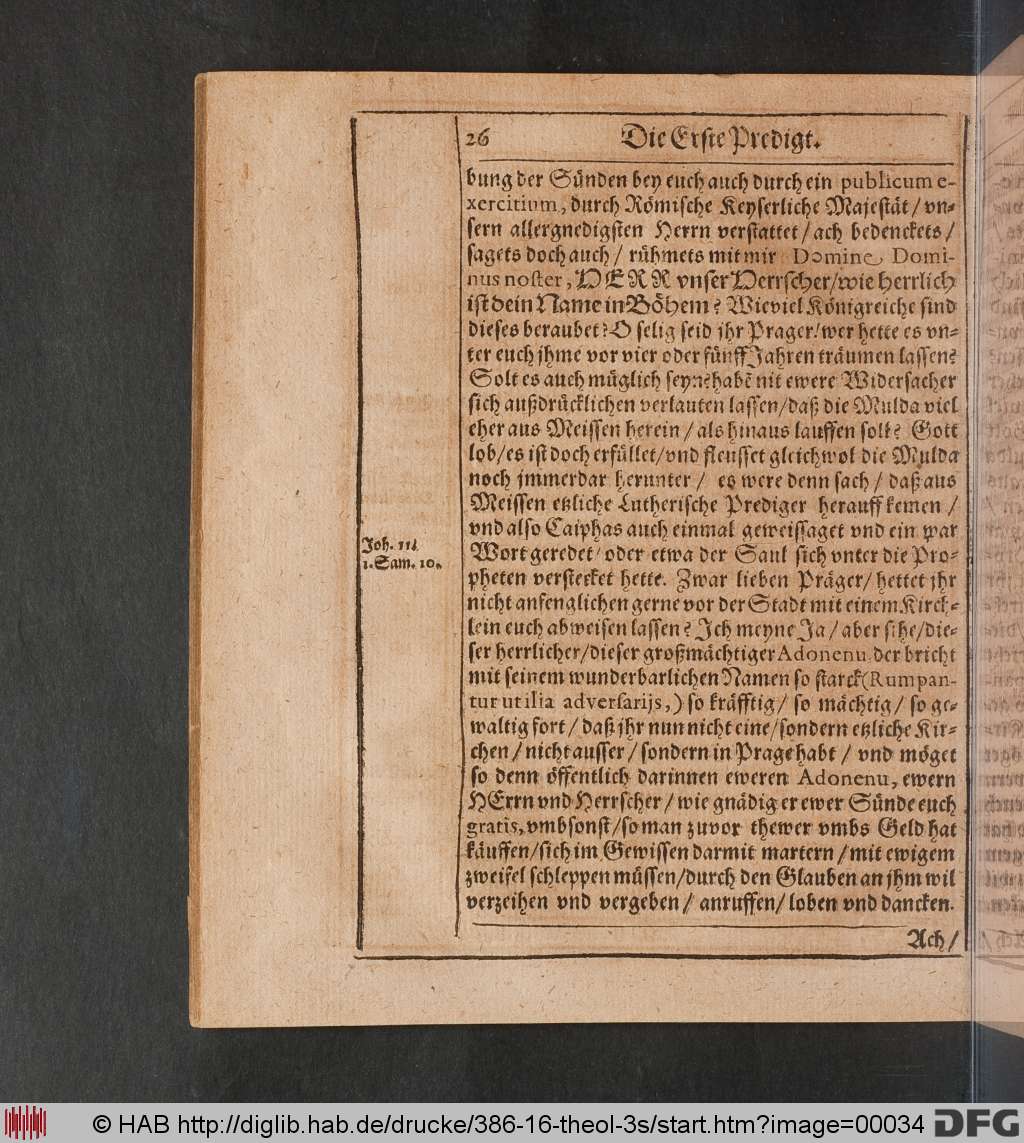 26 Die Erste Predigt.
bung der Sünden bey euch auch durch ein publicum e-
xercitium, durch Römische Keyserliche Majestät / vn-
sern allergnedigsten Herrn verstattet / ach bedenckets /
sagets doch auch / rühmets mit mir Domine, Domi-
nus noster, HERR vnser Herrscher / wie herrlich
ist dein Name in Böhem? Wie viel Königreiche sind
dieses beraubet? O selig seid jhr Prager! wer hette es vn-
ter euch jhme vor vier oder fünff Jahren träumen lassen?
Solt es auch müglich seyn? habẽ nit ewere Widersacher
sich außdrücklichen verlauten lassen / daß die Mulda viel
eher aus Meissen herein / als hinaus lauffen solt? Gott
lob / es ist doch erfüllet / vnd fleusset gleichwol die Mulda
noch jmmerdar herunter / es were denn sach / daß aus
Meissen etzliche Lutherische Prediger herauff kemen /
vnd also Caiphas auch einmal geweissaget vnd ein war
Joh. 11.
Wort geredet / oder etwa der Saul sich vnter die Pro-
1. Sam. 10.
pheten verstecket hette. Zwar lieben Präger / hettet jhr
nicht anfenglichen gerne vor der Stadt mit einem Kirch-
lein euch abweisen lassen? Ich meyne Ja / aber sihe / die-
ser herrlicher / dieser großmächtiger Adonenu der bricht
mit seinem wunderbarlichen Namen so starck (Rumpan-
tur ut ilia adversarijs,) so kräfftig / so mächtig / so ge-
waltig fort / daß jhr nun nicht eine / sondern etzliche Kir-
chen / nicht ausser / sondern in Prage habt / vnd möget
so denn öffentlich darinnen eweren Adonenu, ewern
HErrn vnd Herrscher / wie gnädig er ewer Sünde euch
gratis, vmbsonst / so man zuvor thewer vmbs Geld hat
käuffen / sich im Gewissen darmit martern / mit ewigem
zweifel schleppen müssen / durch den Glauben an jhm wil
verzeihen vnd vergeben / anruffen / loben vnd dancken.
Ach /
© HAB http://diglib.hab.de/drucke/386-16-theol-3s/start.htm?image=00034
DFG